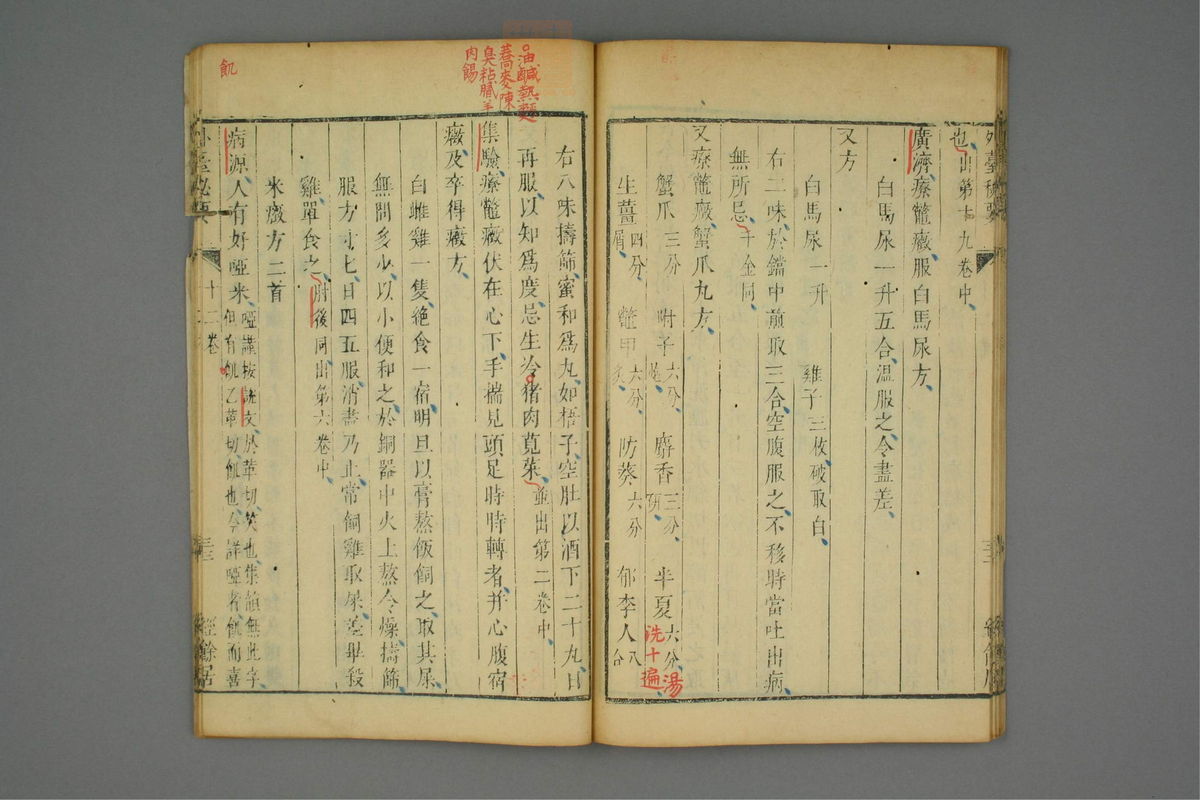 外臺秘要
也出第十九卷中
廣濟療鼈癥服白馬尿方
白馬尿一升五合溫服之令盡差
又方
白馬尿一升 雞子三枚破取白
右二味於鐺中煎取三合空腹服之不移時當吐出病
無所忌千金同
又療鼈癥蟹爪丸方
蟹爪三分 附子六分炮 麝香三分研 半夏六分湯洗十遍
生薑四分屑 鼈甲六分炙 防葵六分 郁李人八合
油鹹熱麵
蕎麥陳
臭粘膩羊
肉餳
右八味擣篩蜜和為丸如梧子空肚以酒下二十丸日
再服以知為度忌生冷猪肉莧菜並出第二卷中
集驗療鼈癥伏在心下手揣見頭足時時轉者并心腹宿
癥及卒得癥方
白雌雞一隻絕食一宿明旦以膏熬飯飼之取其屎
無問多少以小便和之於銅器中火上熬令燥擣篩
服方寸匕日四五服消盡乃止常飼雞取屎差畢殺
雞單食之肘後同出第六卷中
米癥方二首
飢
病源人有好啞米啞謹按說文於革切笑也集韻無此字
但有飢乙革切飢也今詳啞者飢而喜
外臺秘要
十二卷
經餘居